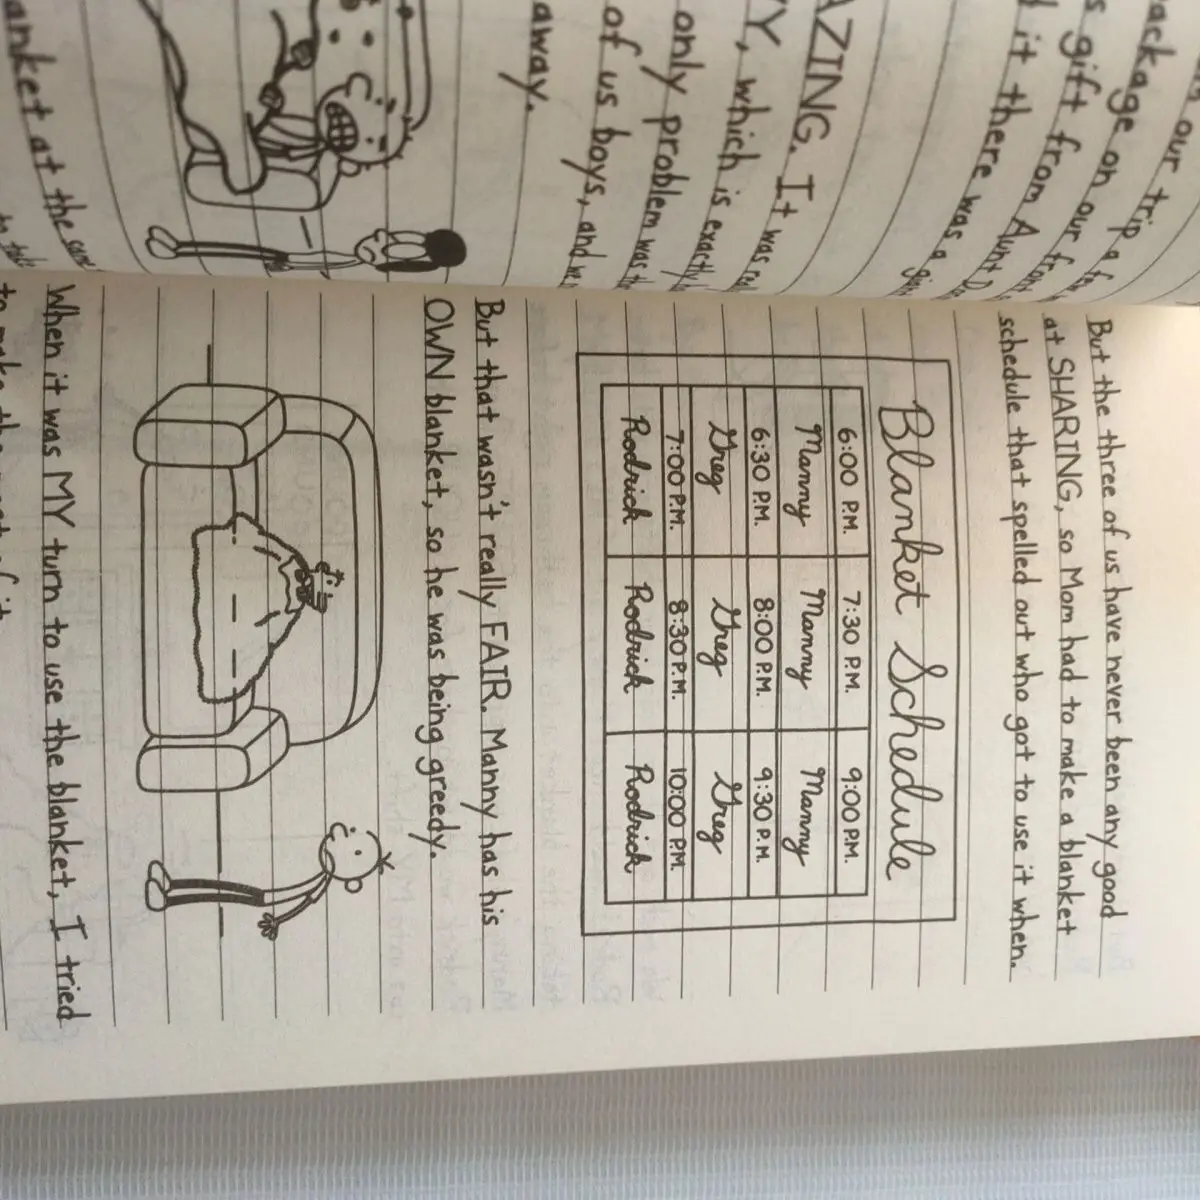 our trip
ackage on our fron
s gift from Aunt D
d it there was a gian
AZING. It was
Y, which is exactly
only problem was th
of us boys, and we
away.
anket at the same
But the three of us have never been any good
at SHARING, so Mom had to make a blanket
schedule that spelled out who got to use it when.
Blanket Schedule
6:00 P.M. 7:30 P.M. 9:00 P.M.
Manny Manny Manny
6:30 P.M. 8:00 P.M. 9:30 P.M.
Greg Greg Greg
7:00 P.M. 8:30 P.M. 10:00 P.M.
Rodrick Rodrick Rodrick
But that wasn't really FAIR. Manny has his
OWN blanket, so he was being greedy.
When it was MY turn to use the blanket, I tried
to make the most of it